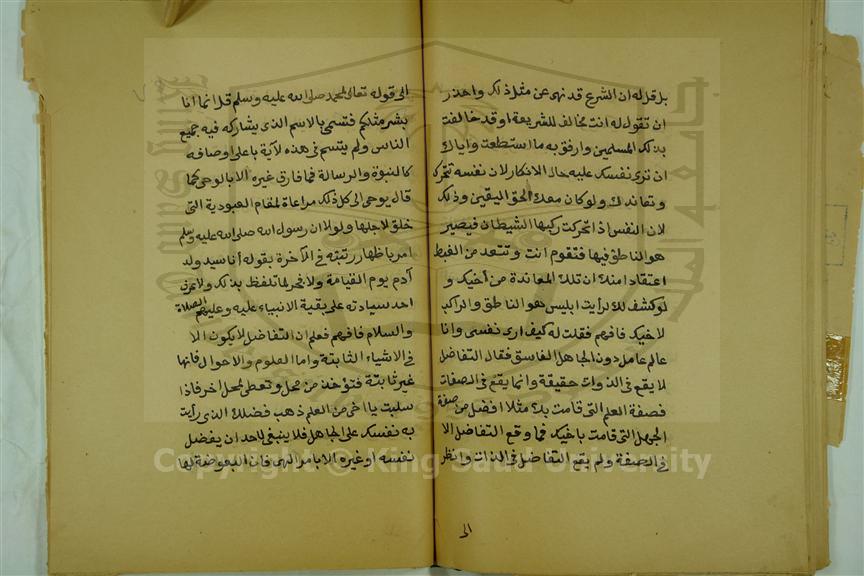 بل قل له ان الشرع قد نهى عن مثل ذلك واحذر
ان تقول له انت مخالف للشريعة او قد خالفت
بذلك المسلمين وارفق به ما استطعت واياك
ان ترى نفسك عليه حال الانكار لان نفسه تتحرك
وتعاندك ولو كان معك الحق اليقين وذلك
لان النفس اذا تحركت ركبها الشيطان فيصير
هو الناطق فيها فتقوم انت وتتعد من الغيظ
اعتقادا منك ان تلك المعاندة من أخيك و
لو كشف لك لرايت ابليس هو الناطق والراكب
لاخيك فافهم فقلت له كيف ارى نفسى وانا
عالم عامل دون الجاهل الفاسق فقال التفاضل
لا يقع فى الذوات حقيقة وانما يقع فى الصفات
فصفة العلم التى قامت بك مثلا افضل من صفة
الجهل التى قامت باخيك فما وقع التفاضل الا
فى الصفة ولم يقع التفاضل فى الذات وانظر
الى
الى قوله تعالى لمحمد صلى الله عليه وسلم قل انما انا
بشر مثلكم فتسمى بالاسم الذى يشاركه فيه جميع
الناس ولم يتسم فى هذه لآية باعلى اوصافه
كالنبوة والرسالة فما فارق غيره الا بالوحى كما
قال يوحى الى كل ذلك مراعاة لمقام العبودية التى
خلق لاجلها ولولا ان رسول الله صلى الله عليه وسلم
امر باظهار رتبته فى الآخرة بقوله أنا سيد ولد
آدم يوم القيامة ولا فخر لما تلفظ بذلك ولا عرف
احد سيادته على بقية الانبياء عليه وعليهم الصلاة
والسلام فافهم فعلم ان التفاضل لا يكون الا
فى الاشياء الثابتة واما العلوم والاحوال فانها
غير ثابتة فتؤخذ من محل وتعطى لمحل اخر فاذا
سلبت يا اخى من العلم ذهب فضلك الذى رأيت
به نفسك على الجاهل فلا ينبغى لاحد ان يفضل
نفسه او غيره الا بامر الهى فان البعوضة لها
Copyright © King Saud University